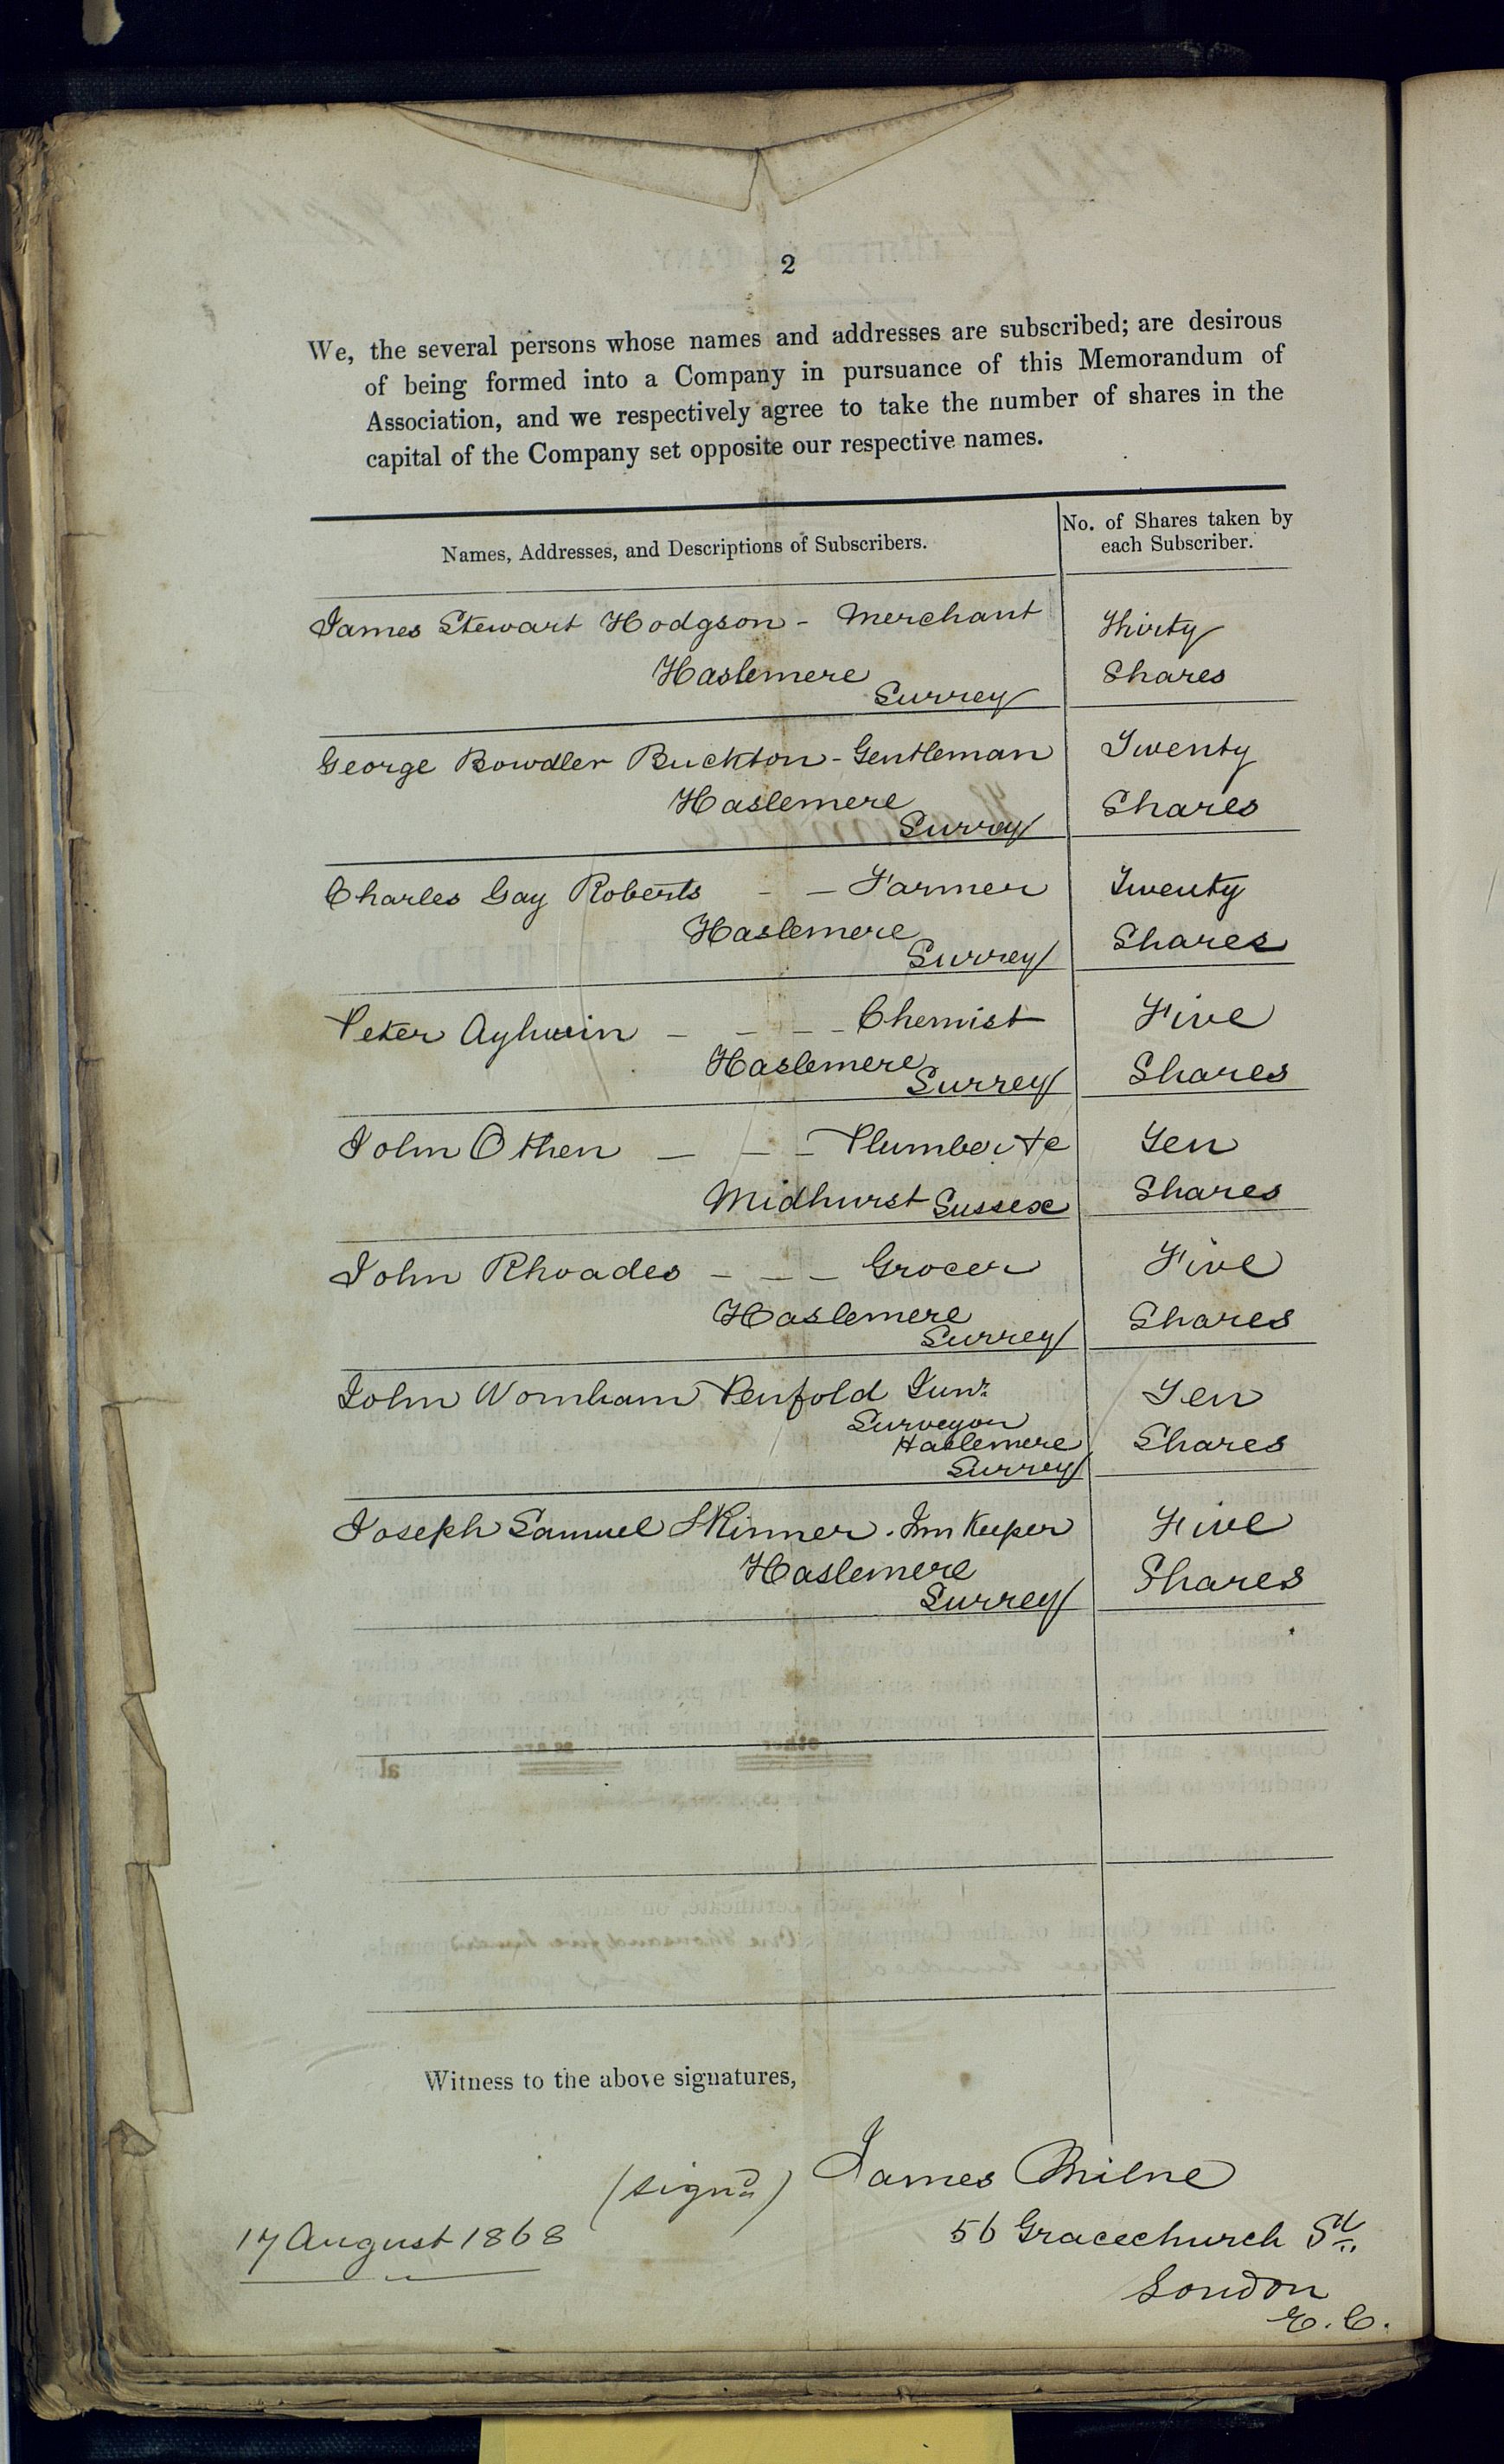 2
We, the several persons whose names and addresses are subscribed; are desirous
of being formed into a Company in pursuance of this Memorandum of
Association, and we respectively agree to take the number of shares in the
capital of the Company set opposite our respective names.
Names, Addresses, and Descriptions of Subscribers.
No. of Shares taken by
each Subscriber.
James Stewart Hodgson - Merchant
Haslemere
Surrey
Thirty
Shares
George Bowdler Buckton - Gentleman
Haslemere
Surrey
Twenty
Shares
Charles Gay Roberts - - Farmer
Haslemere
Surrey
Twenty
Shares
Peter Aylwin - - - - Chemist
Haslemere
Surrey
Five
Shares
John Othen - - - - Plumber &c
Midhurst Sussex
Ten
Shares
John Rhoades - - - Grocer
Haslemere
Surrey
Five
Shares
John Wornham Penfold Junr
Surveyor
Haslemere
Surrey
Ten
Shares
Joseph Samuel Skinner. Inn Keeper
Haslemere
Surrey
Five
Shares
Witness to the above signatures,
(signd) James Milne
17 August 1868
56 Gracechurch St.
London
E.C.